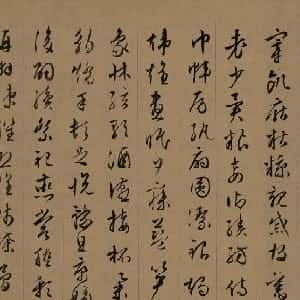 宰飢厭糟糠親戚故舊
老少異糧妾御績紡侍
巾帷房紈扇圓潔銀燭
煒煌晝眠夕寐藍筍
象床弦歌酒讌接杯舉
觴矯手頓足悅豫且康嫡
後嗣續祭祀蒸嘗稽顙
再拜悚懼恐惶箋牒簡